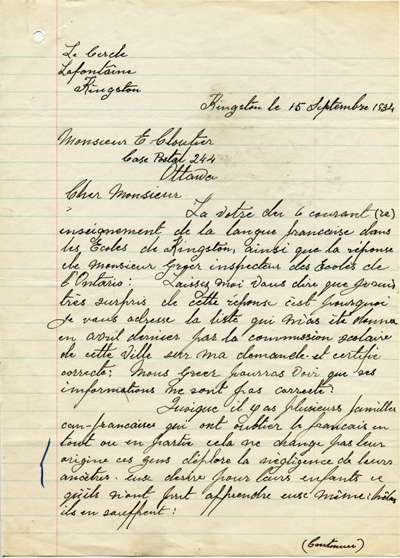 Le Cercle
Lafontaine
Kingston
Kingston le 15 Septembre 1934
Monsieur E Cloutier
Case Postal 244
Ottawa
Cher Monsieur
La votre du 6 courant (re)
enseignement de la langue francaise dans
les Ecoles de Kingston, ainsi que la réponse
de Monsieur inspecteur des Ecoles de
l'Ontario: Laissez moi vous dire que je suis
très surpris de cette réponse c'est pourquoi
Je vous adresse la liste qui m'as été donner
en avril dernier par la commission scolaire
de cette Ville sur ma demande et certifié
correcte; Mons pourras voir que ses
informations ne sont pas correcte:
il y as plusieurs familles
can-francaises qui ont oublier le francais en
tout ou en partie cela ne change pas leur
origine ces gens déplore la négligence de leurs
ancêtres eux désire pour leurs enfants ce
qu'ils n'ont put apprendre eux même: hélas
ils en souffrent:
(Continuer)